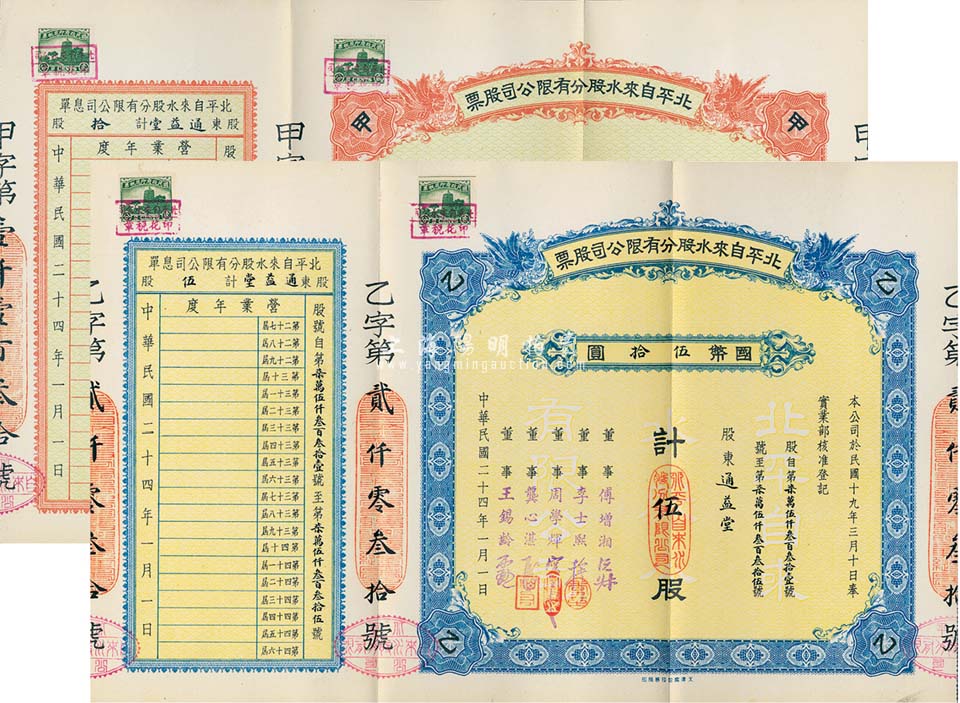 北平自來水股分有限公司息單
股東通益堂計 拾 股
營業年度
股
中華民國二十四年一月一日
甲字第壹仟壹百叁拾號
北平自來水股分有限公司股票
甲
甲
甲字
印花稅章
北平自來水股分有限公司息單
股東通益堂計 伍 股
營業年度
股號自第柒萬伍仟叁百叁拾壹號至第柒萬伍仟叁百叁拾伍號
第二十七屆
第二十八屆
第二十九屆
第三十屆
第三十一屆
第三十二屆
第三十三屆
第三十四屆
第三十五屆
第三十六屆
第三十七屆
第三十八屆
第三十九屆
第四十屆
第四十一屆
第四十二屆
第四十三屆
第四十四屆
第四十五屆
第四十六屆
中華民國二十四年一月一日
乙字第貳仟零叁拾號
乙字第貳仟零叁拾號
印花稅章
北平自來水股分有限公司股票
乙
乙
乙
乙
國幣伍拾圓
本公司於民國十九年三月十日奉
實業部核准登記
股自第柒萬伍仟叁百叁拾壹號
號至第柒萬伍仟叁百叁拾伍號
股東通益堂
計伍股
董事 傅增湘
董事 李士熙
董事 周學煇
董事 龔心湛
董事 王錫齡
中華民國二十四年一月一日
北平自來
有限公
上海陽明拍賣
www.yangmingauction.com